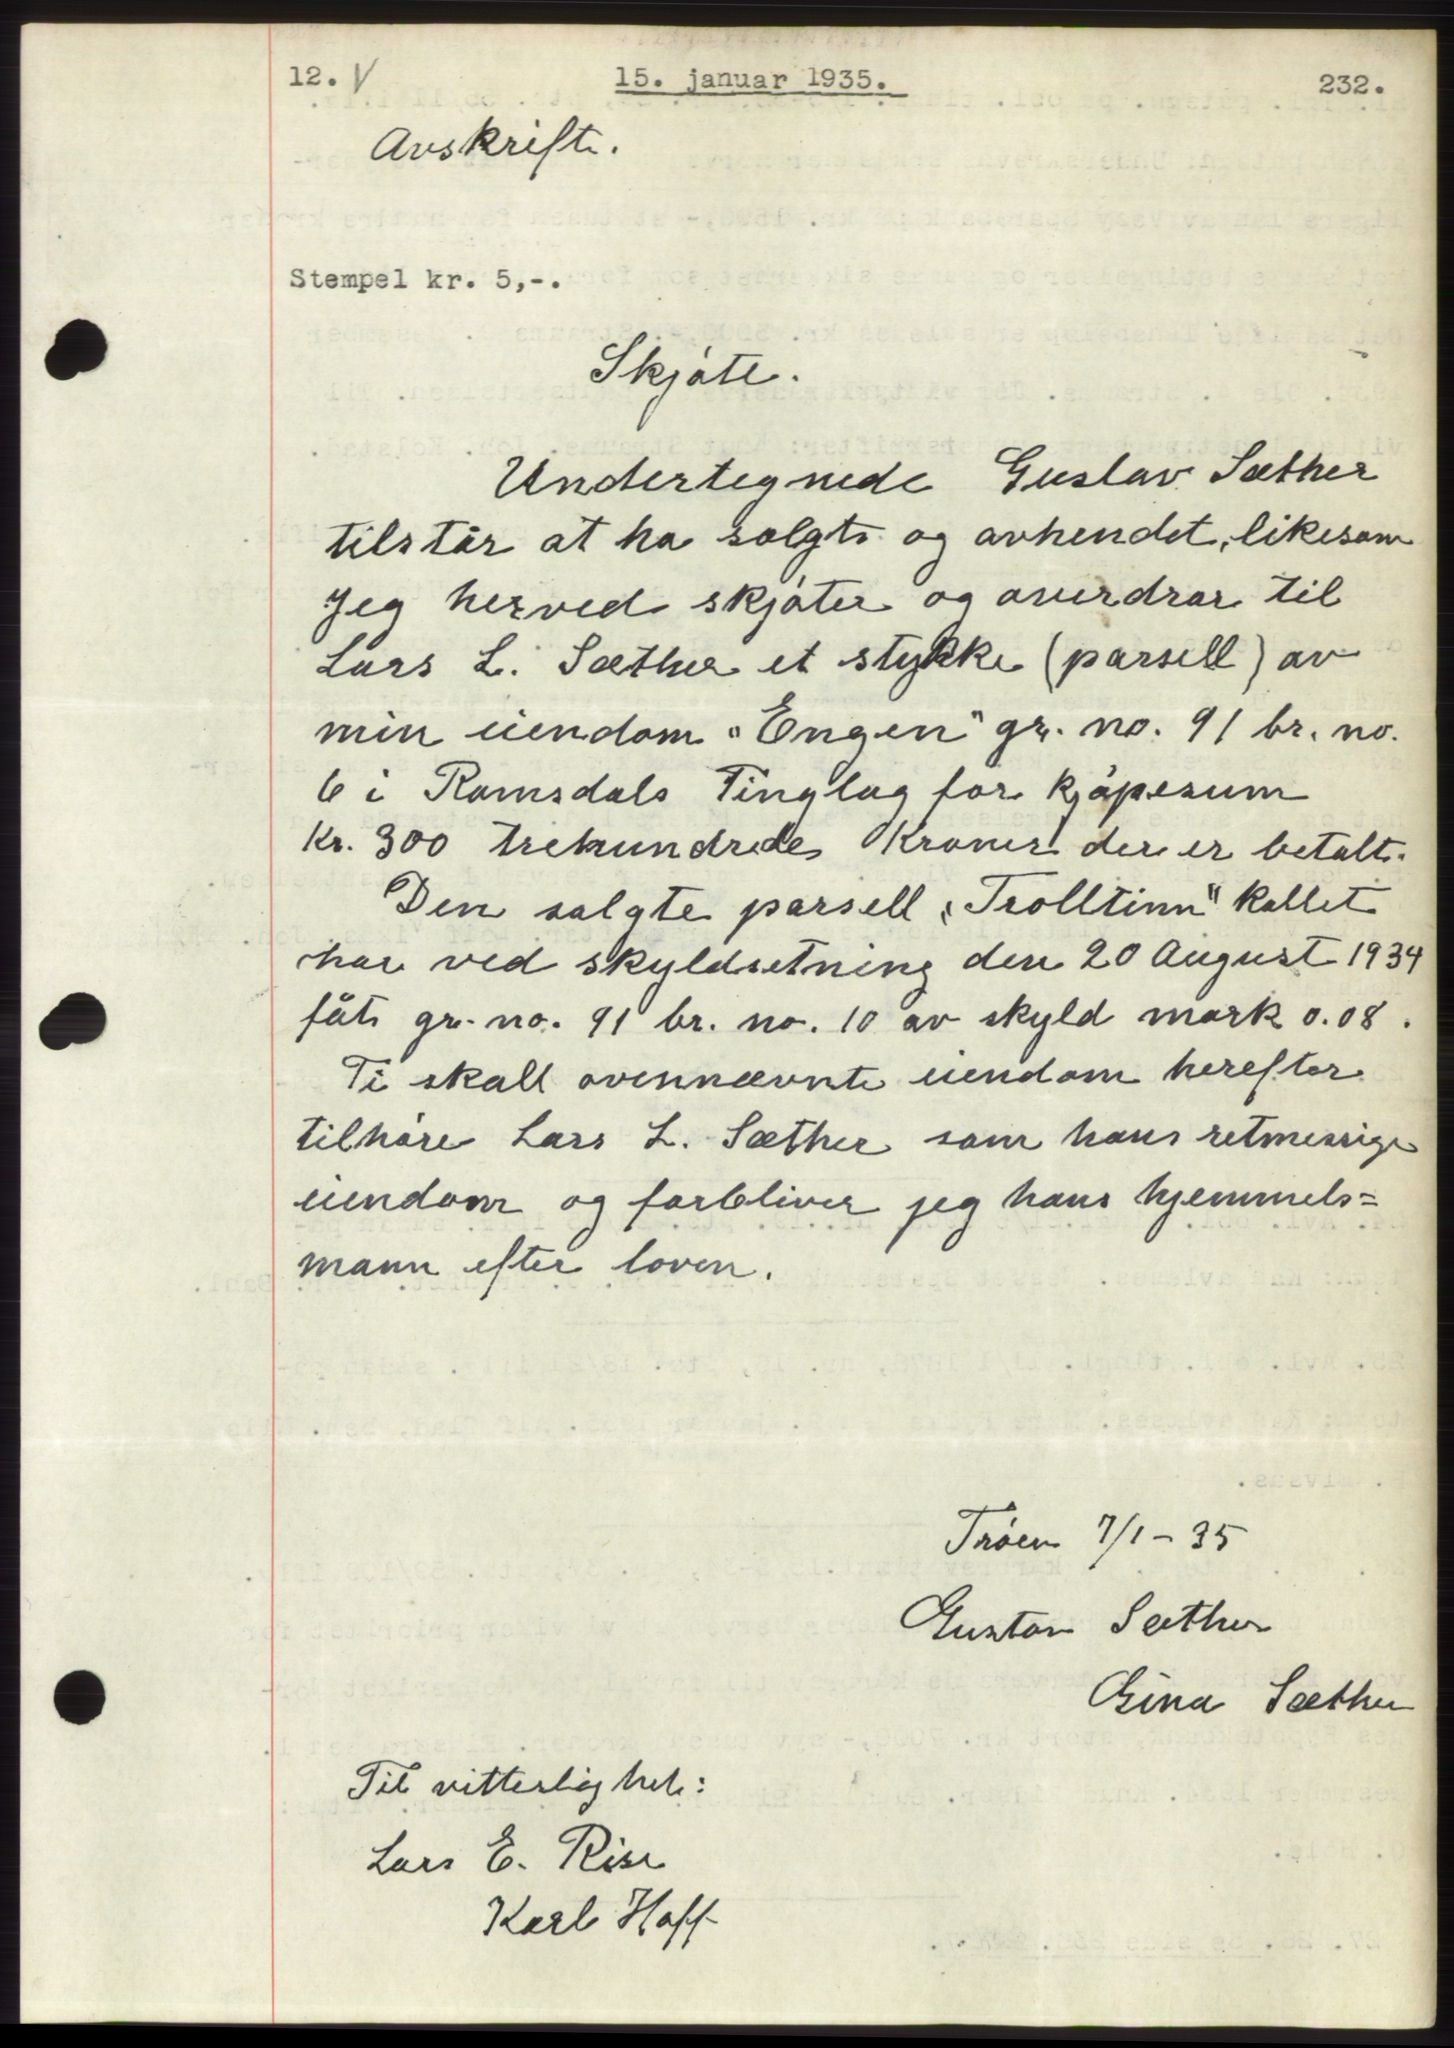 12. V 15. januar 1935. 232.
Avskrift.
Stempel kr. 5,-.
Skjøte.
Undertegnede Gustav Sæther
tilstår at ha solgt og avhendet, likesom
jeg herved skjøter og averdrar til
Lars L. Sæther et stykke (parsell) av
min eiendom "Engen" gr. no. 91 br. no.
6 i Romsdals Tinglag for kjøpesum
Kr. 300 trehundrede Kroner der er betalt.
Den solgte parsell "Trolltinn" kallet
har ved skyldsetning den 20 August 1934
fåt gr. no. 91 br. no. 10 av skyld mark 0.08.
Ti skall ovennævnte eiendom herefter
tilhøre Lars L. Sæther som hans retmessige
eiendom og forbliver jeg hans hjemmels=
mann efter loven.
Trøen 7/1 - 35
Gustav Sæther
Gina Sæther
Til vitterlighet:
Lars E. Rise
Karl Hoff